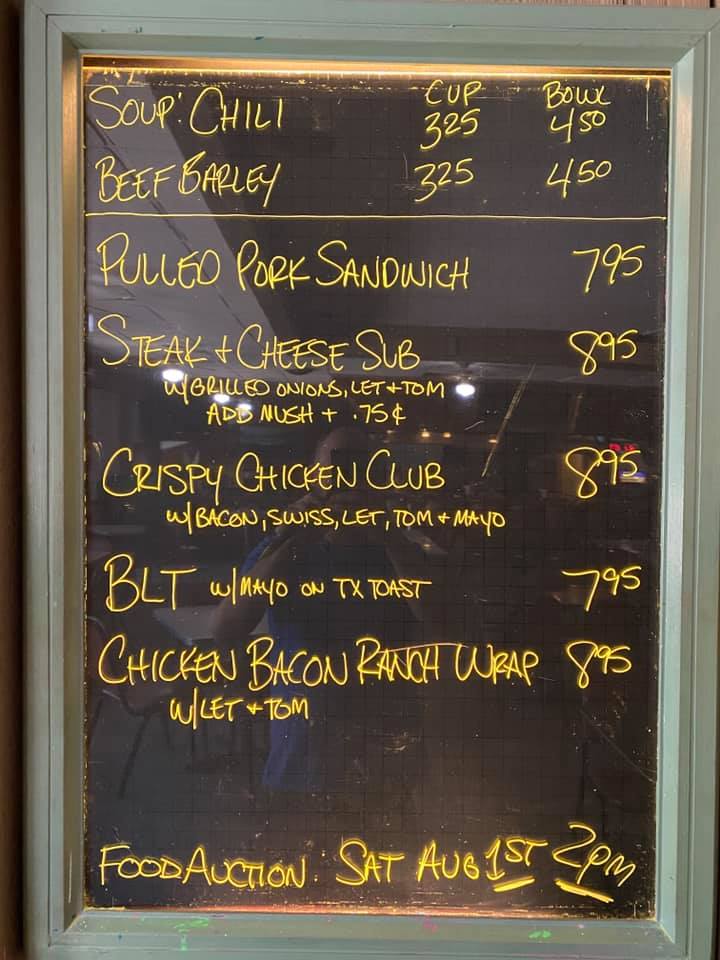 CUP BOWL
SOUP: CHILI 325 450
BEEF BARLEY 325 450
PULLED PORK SANDWICH 795
STEAK + CHEESE SUB 895
W/GRILLED ONIONS, LET + TOM
ADD MUSH + .75¢
CRISPY CHICKEN CLUB 895
W/BACON, SWISS, LET, TOM + MAYO
BLT W/MAYO ON TX TOAST 795
CHICKEN BACON RANCH WRAP 895
W/LET + TOM
FOOD AUCTION: SAT AUG 1ST 2PM